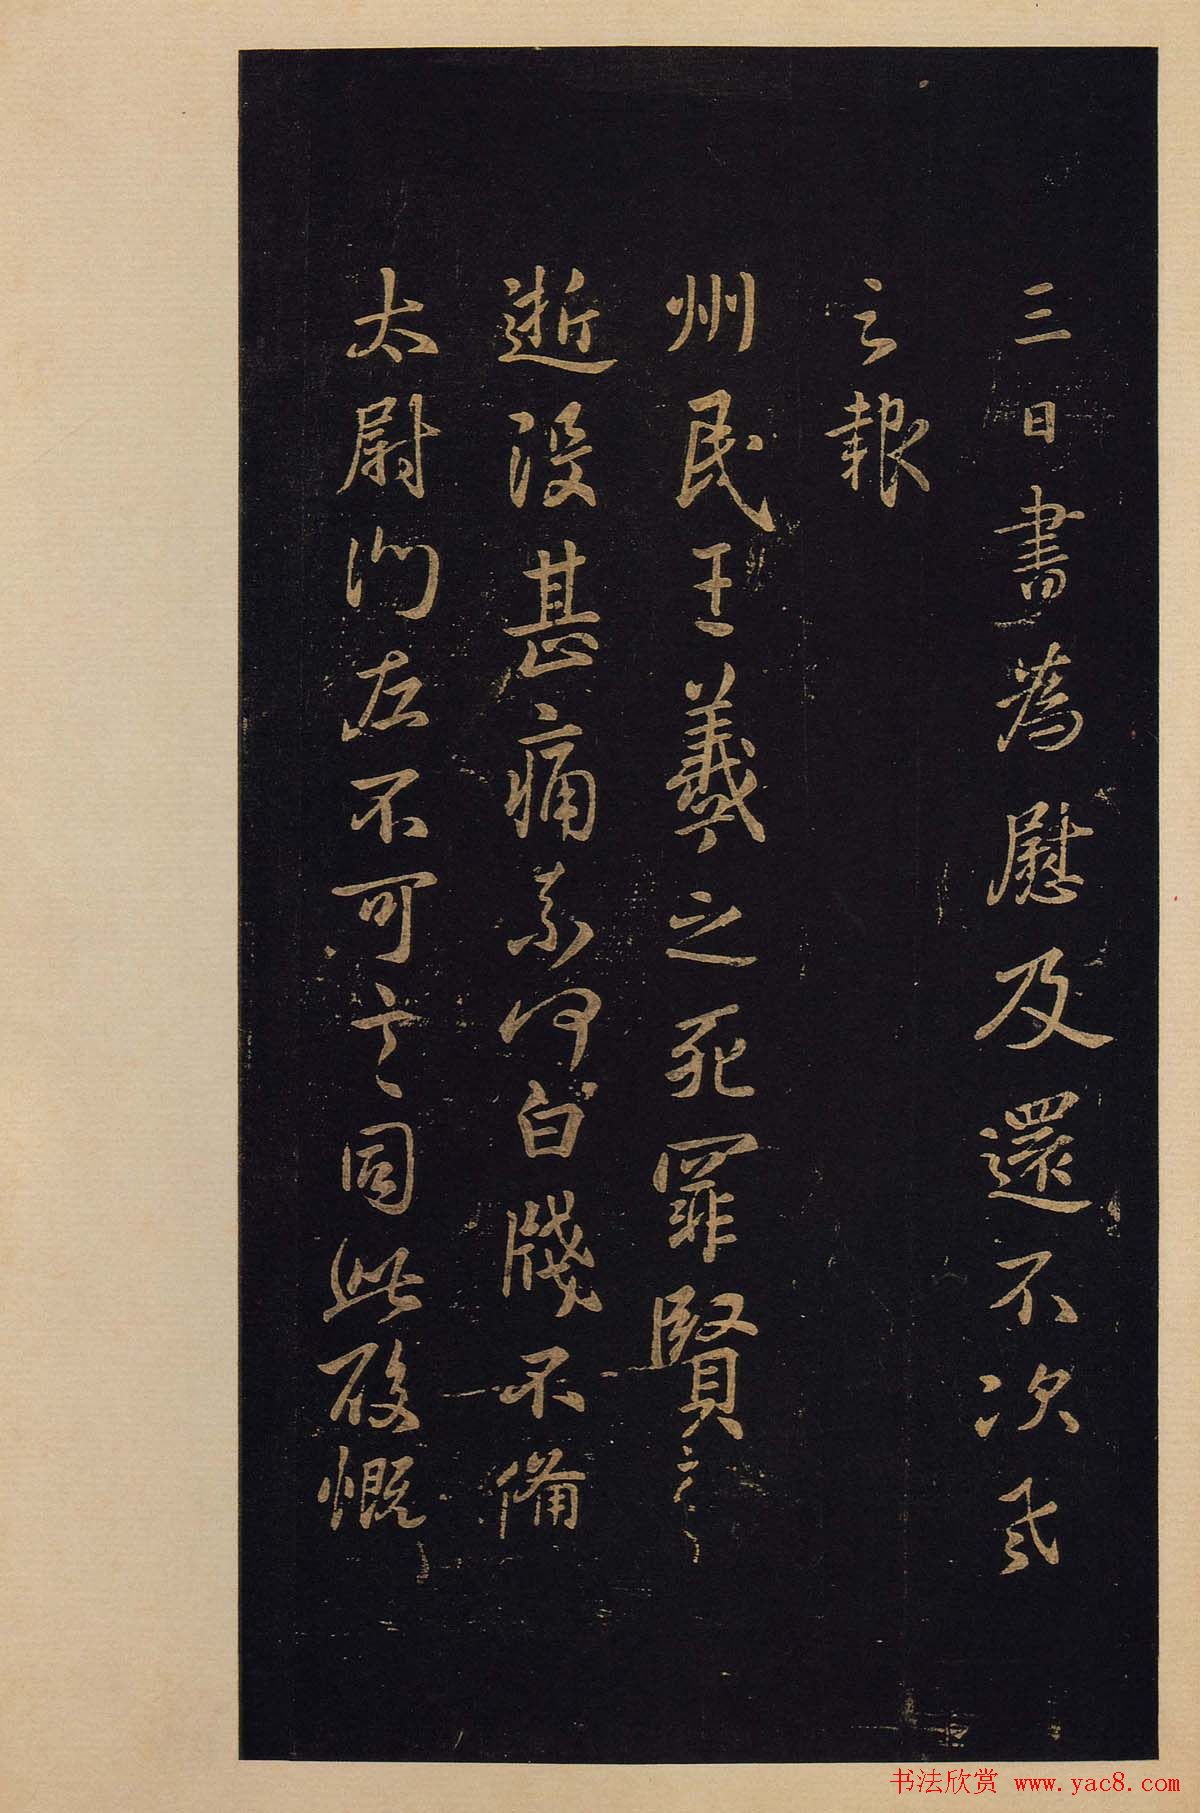 三日書為慰及還不次羲
之報
州民王羲之死罪賢
逝沒甚痛奈何白牋不備
太尉門左不可言同此殷慨
书法欣赏 www.yac8.com